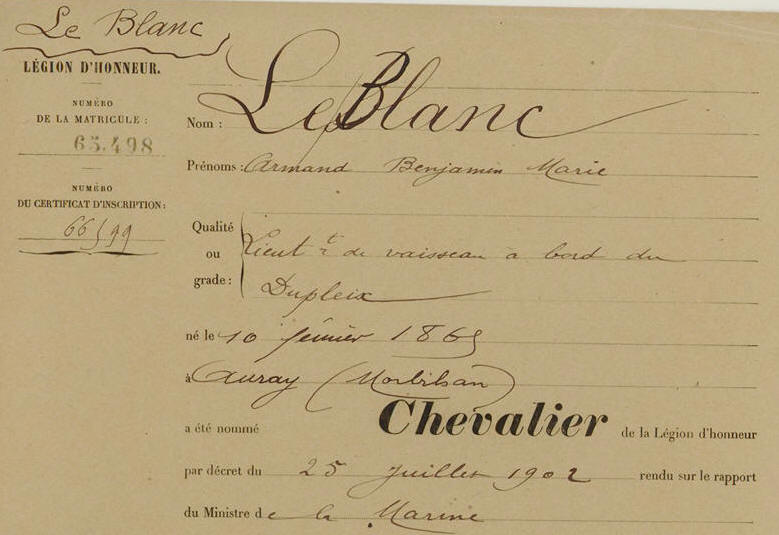 Le Blanc
LÉGION D'HONNEUR.
NUMÉRO
DE LA MATRICULE :
65.498
NUMÉRO
DU CERTIFICAT D'INSCRIPTION :
66599
Nom : Le Blanc
Prénoms : Armand Benjamin Marie
Qualité
ou
grade :
Lieut t de vaisseau à bord du
Dupleix
né le 10 février 1865
à Auray (Morbihan)
a été nommé Chevalier de la Légion d'honneur
par décret du 25 Juillet 1902 rendu sur le rapport
du Ministre de la Marine